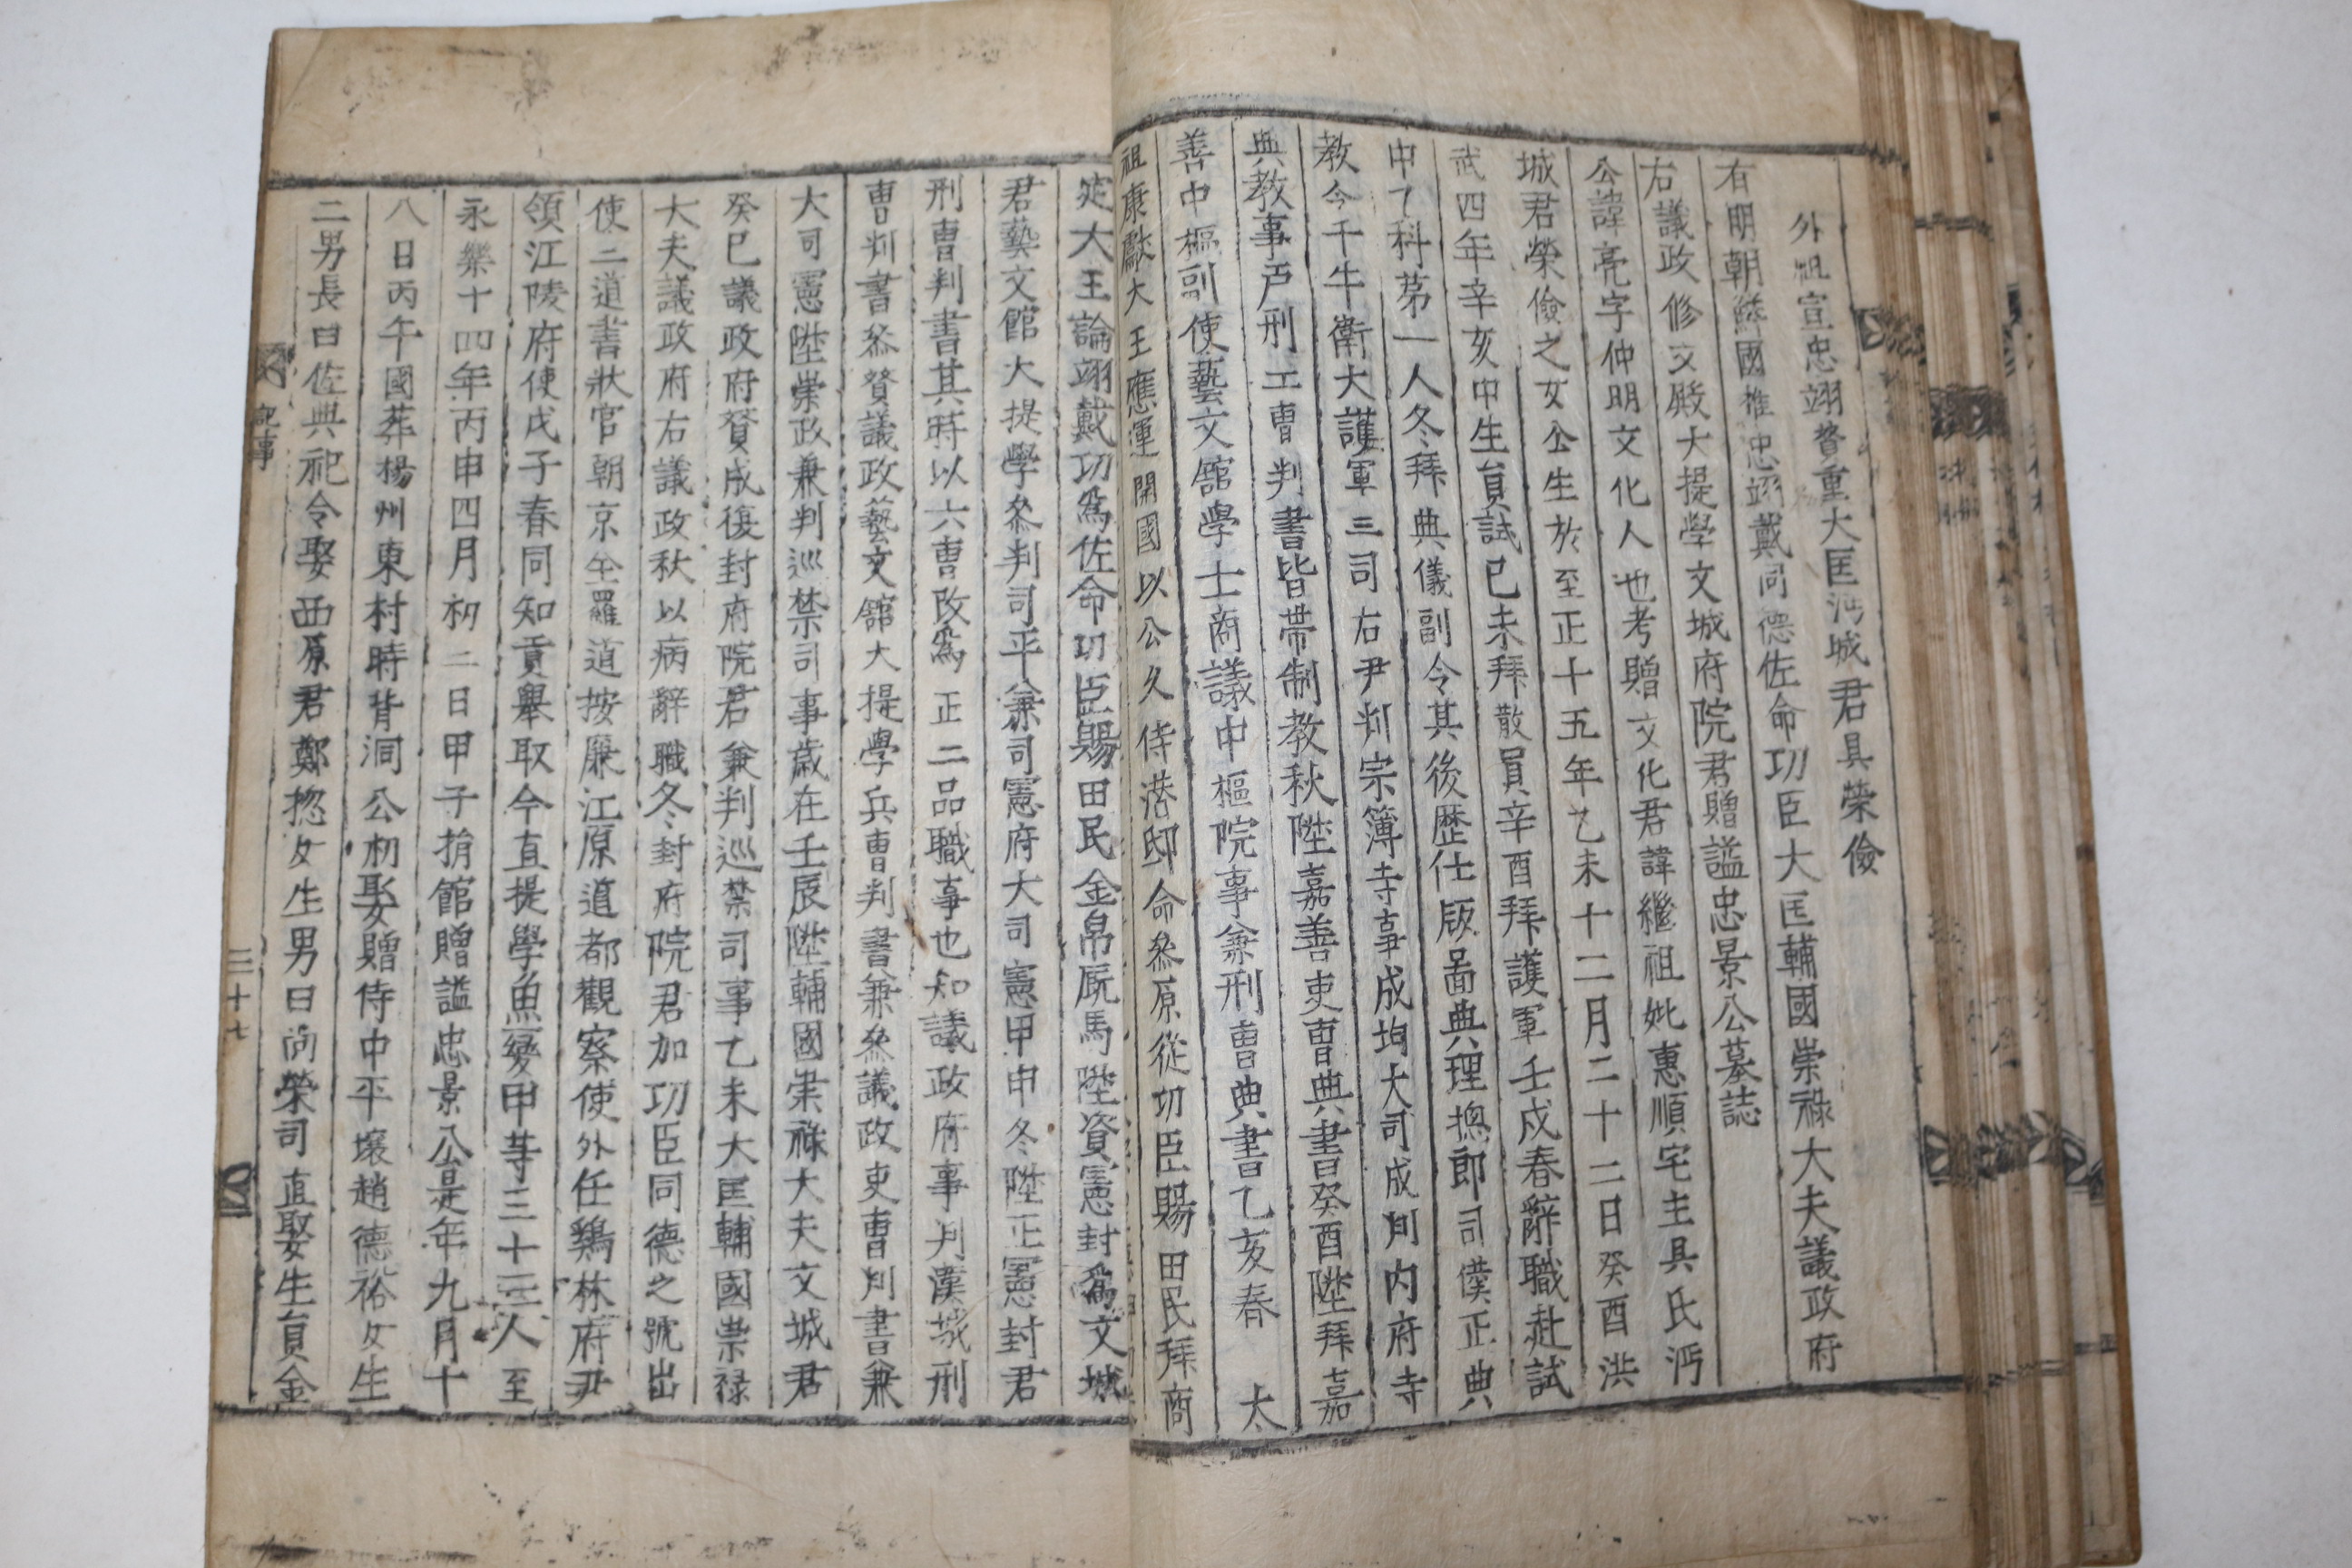 外祖宣忠翊贊重大匡沔城君具榮儉
有明朝鮮國推忠翊戴同德佐命功臣大匡輔國崇祿大夫議政府
右議政修文殿大提學文城府院君贈諡忠景公墓誌
公諱亮字仲明文化人也考贈文化君諱繼祖妣惠順宅主具氏沔
城君榮儉之女公生於至正十五年乙未十二月二十二日癸酉洪
武四年辛亥中生員試己未拜散員辛酉拜護軍壬戌春辭職赴試
中乙科苐一人冬拜典儀副令其後歷仕版啚典理摠郎司僕正典
教令千牛衛大護軍三司右尹判宗簿寺事成均大司成判內府寺
典教事戶刑工曹判書皆帶制教秋陞嘉善吏曹典書癸酉陞拜嘉
善中樞副使藝文舘學士商議中樞院事兼刑曹典書乙亥春 太
祖康獻大王應運開國以公久侍潛邸命叅原從功臣賜田民拜商
定大王論翊戴功爲佐命功臣賜田民金帛厩馬陞資憲封爲文城
君藝文館大提學叅判司平兼司憲府大司憲甲申冬陞正憲封君
刑曹判書其時以六曹改爲正二品職事也知議政府事判漢城刑
曹判書叅贊議政藝文舘大提學兵曹判書兼叅議政吏曹判書兼
大司憲陞崇政兼判巡禁司事歲在壬辰陞輔國崇祿大夫文城君
癸巳議政府贊成復封府院君兼判巡禁司事乙未大匡輔國崇祿
大夫議政府右議政秋以病辭職冬封府院君加功臣同德之號出
使二道書狀官朝京全羅道按廉江原道都觀察使外任鷄林府尹
領江陵府使戊子春同知貢舉取今直提學魚變甲等三十三人至
永樂十四年丙申四月初二日甲子捐館贈諡忠景公是年九月十
八日丙午國葬楊州東村時背洞公初娶贈侍中平壤趙德裕女生
二男長曰佐典祀令娶西原君鄭摠女生男曰尙榮司直娶生員金
記事
三十七